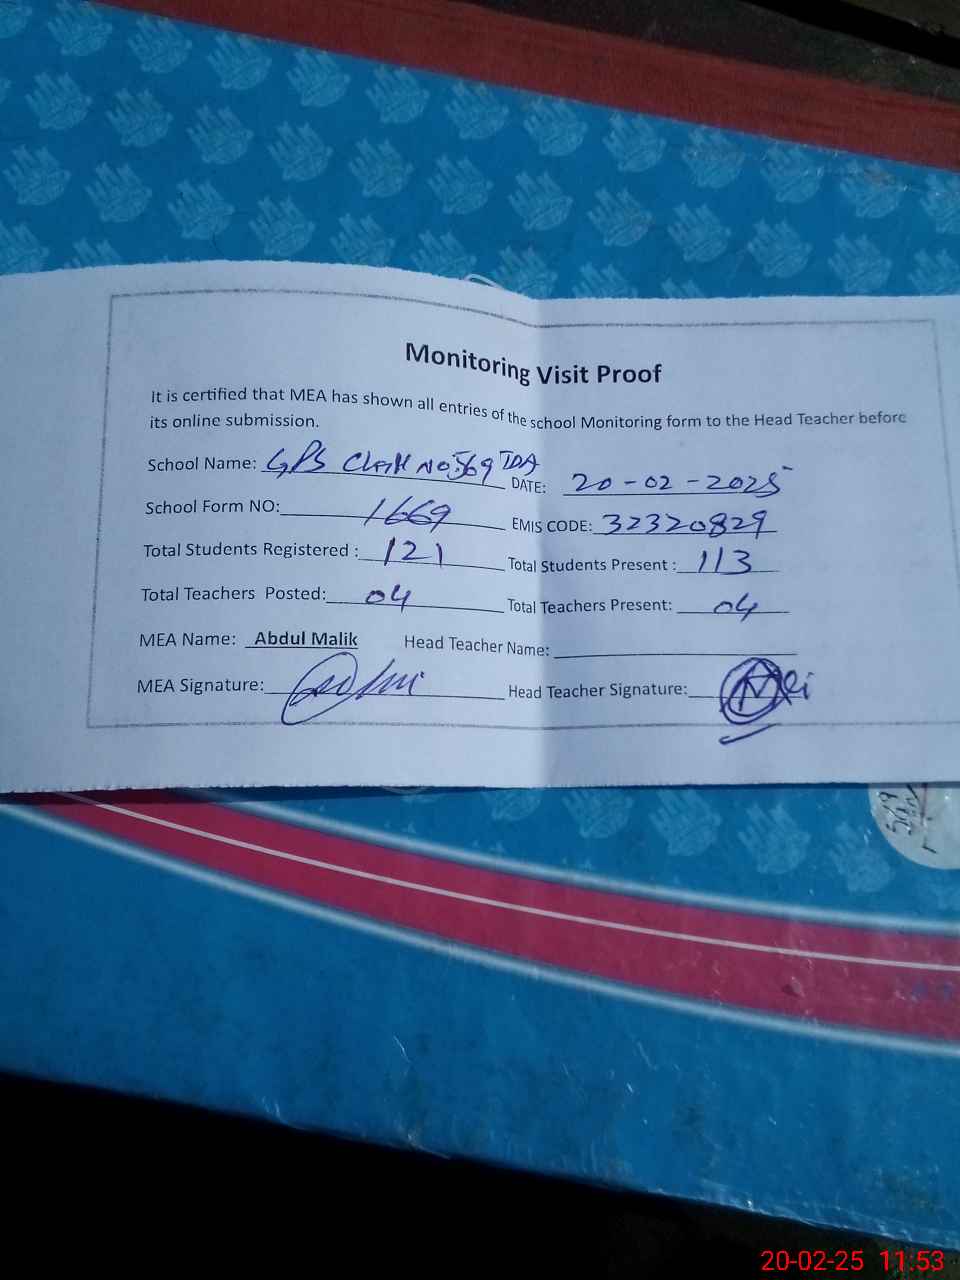 Monitoring Visit Proof
It is certified that MEA has shown all entries of the school Monitoring form to the Head Teacher before
its online submission.
School Name: GPS Chak No 569 TDA DATE: 20-02-2025
School Form NO: 1669 EMIS CODE: 32320829
Total Students Registered : 121 Total Students Present : 113
Total Teachers Posted: 04 Total Teachers Present: 04
MEA Name: Abdul Malik Head Teacher Name:
MEA Signature: Head Teacher Signature:
20-02-25 11:53